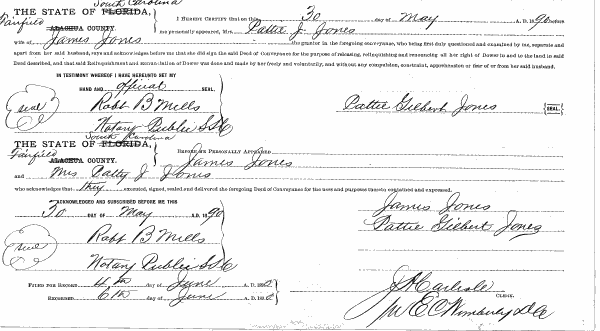 South Carolina
THE STATE OF FLORIDA,
Fairfield ALACHUA COUNTY.
I HEREBY CERTIFY that on this 30 day of May A. D. 1890 before
me personally appeared, Mrs. Pattie J. Jones
wife of James Jones the grantor in the foregoing conveyance, who being first duly questioned and examined by me, separate and
apart from her said husband, says and acknowledges before me that she did sign the said Deed of Conveyance for the purpose of releasing, relinquishing and renouncing all her right of Dower in and to the land in said
Deed described, and that said Relinquishment and renunciation of Dower was done and made by her freely and voluntarily, and without any compulsion, constraint, apprehension or fear of or from her said husband.
IN TESTIMONY WHEREOF I HAVE HEREUNTO SET MY
HAND AND official SEAL.
seal Robt B Mills
Pattie Gilbert Jones SEAL.
Notary Public S.C
South Carolina
THE STATE OF FLORIDA,
Fairfield ALACHUA COUNTY.
BEFORE ME PERSONALLY APPEARED James Jones
and Mrs Patty J Jones
who acknowledges that they executed, signed, sealed and delivered the foregoing Deed of Conveyance for the uses and purposes therein contained and expressed.
ACKNOWLEDGED AND SUBSCRIBED BEFORE ME THIS
30 DAY OF May A. D. 1890
James Jones
Pattie Gilbert Jones
seal Robt B Mills
Notary Public S.C
FILED FOR RECORD 4th day of June A. D. 1890
RECORDED 6th day of June A. D. 1890
J A Carlisle
CLERK.
pr E C Wimberly D C